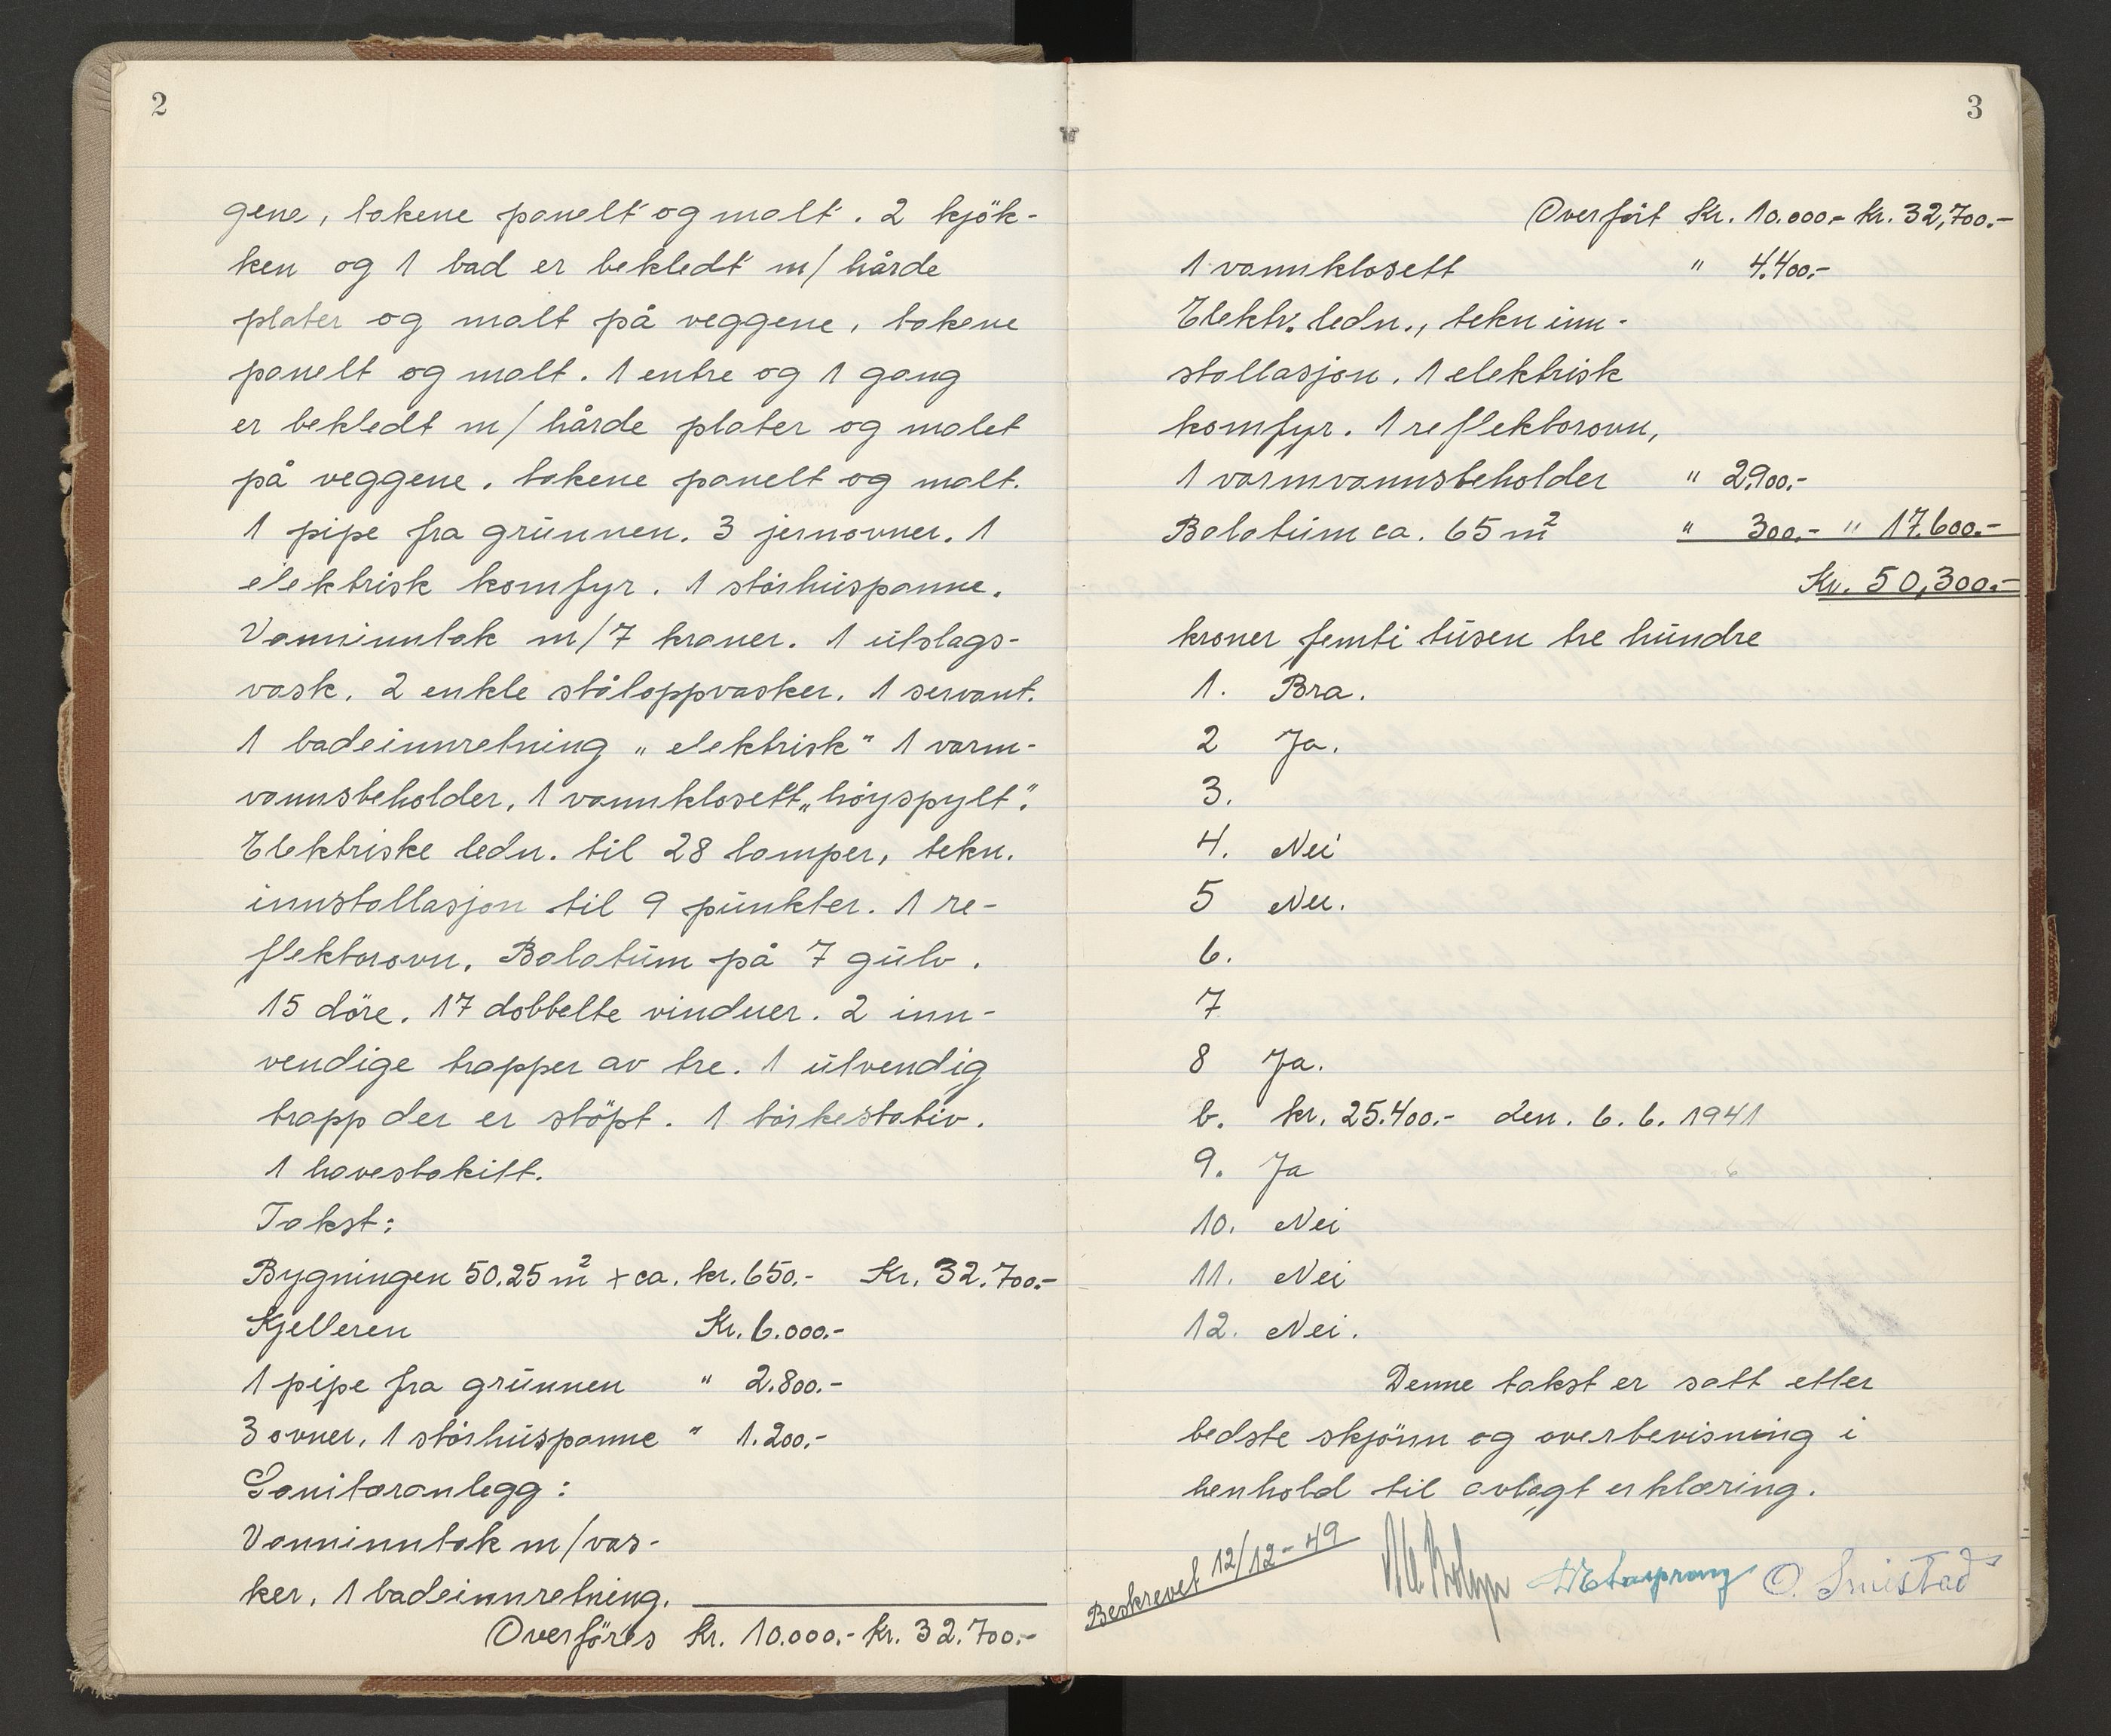 2
gene, takene panelt og malt. 2 kjök-
ken og 1 bad er bekledt m/ hårde
plater og malt på veggene, takene
panelt og malt. 1 entre og 1 gang
er bekledt m/ hårde plater og malet
på veggene. takene panelt og malt.
1 pipe fra grunnen. 3 jernovner. 1
elektrisk komfyr. 1 störhuspanne.
Vanninntak m/7 kraner. 1 utslags-
vask. 2 enkle ståloppvasker. 1 servant.
1 badeinnretning „elektrisk" 1 varm-
vannsbeholder, 1 vannklosett „höyspylt".
Elektriske ledn. til 28 lamper, tekn.
innstallasjon til 9 punkter. 1 re-
flektorovn. Balatum på 7 gulv.
15 döre. 17 dobbelte vinduer. 2 inn-
vendige trapper av tre. 1 utvendig
trapp der er stöpt. 1 törkestativ.
1 havestakitt.
Takst:
Bygningen 50.25 m² x ca. kr. 650.- Kr. 32.700.-
Kjelleren Kr. 6.000.-
1 pipe fra grunnen " 2.800.-
3 ovner, 1 störhuspanne " 1.200.-
Sanitæranlegg:
Vanninntak m/vas-
ker, 1 badeinnretning.
Overföres Kr. 10.000.- Kr. 32.700.-
3
Overfört Kr. 10.000.- Kr. 32,700.-
1 vannklosett " 4.400.-
Elektr. ledn., tekn inn-
stallasjon. 1 elektrisk
komfyr. 1 reflektorovn,
1 varmvannsbeholder " 2.900.-
Balatum ca. 65 m² " 300.- " 17.600.-
Kr. 50,300.-
kroner femti tusen tre hundre
1. Bra.
2 Ja.
3.
4. Nei
5 Nei.
6.
7
8 Ja.
b. kr. 25.400.- den. 6. 6. 1941
9. Ja
10. Nei
11. Nei
12. Nei.
Denne takst er satt etter
bedste skjönn og overbevisning i
henhold til avlagt erklæring.
Beskrevet 12/12-49
O. Smistad